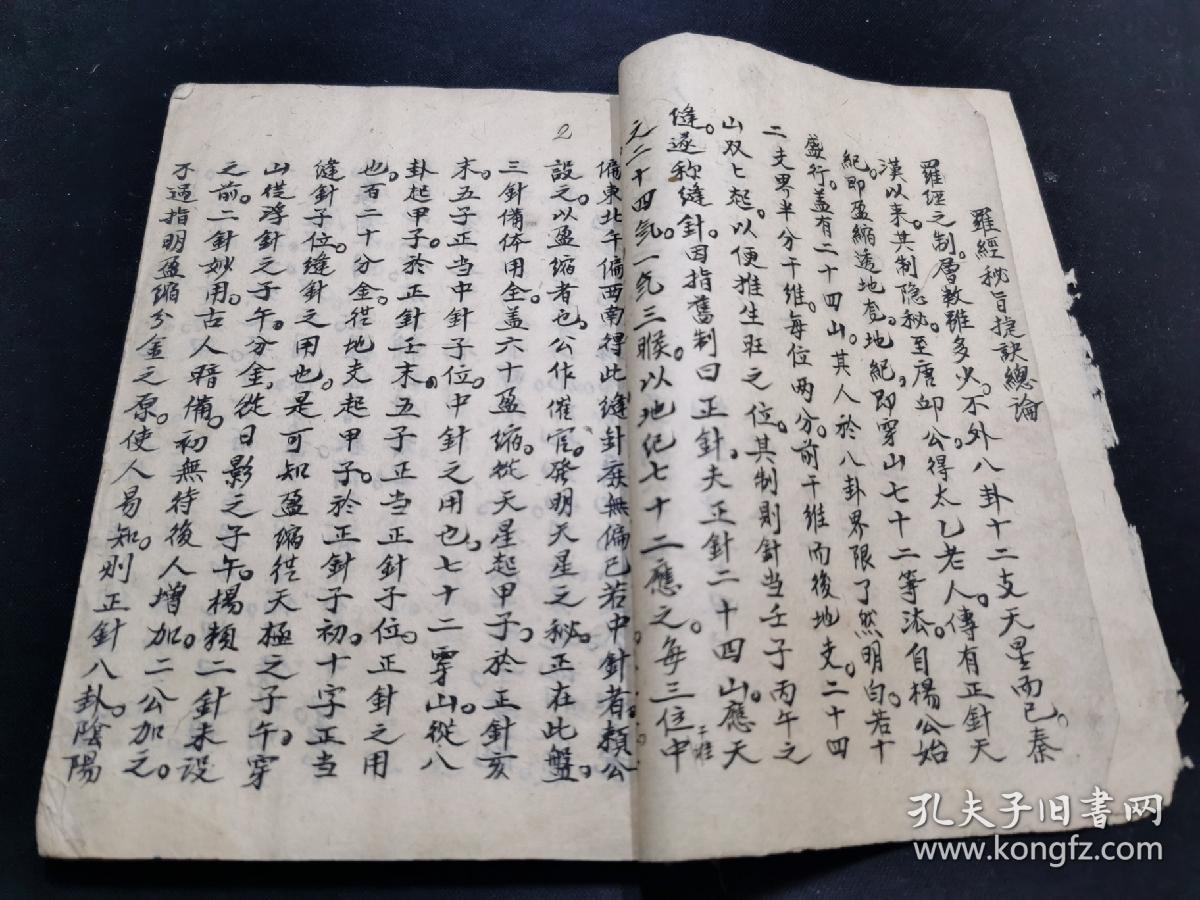 羅經秘旨捷訣總論
羅經之制。層数雖多火。不外八卦十二支天星而已。秦
漢以来。其制隐秘。至唐邱公得太乙老人。傳有正針天
紀。即盈縮透地竜。地紀。即穿山七十二等法。自楊公始
盛行。盖有二十四山。其人於八卦界限了然明白。若十
二支界半分干維。每位两分。前干維而後地支。二十四
山双匕起。以便推生旺之位。其制則針当壬子丙午之
縫。遂称縫針。因指舊制曰正針。夫正針二十四山。應天
元二十四氣。一気三候。以地纪七十二應之。每三位中
干維
偏東北午偏西南得此縫針庶無偏已若中針者。頼公
設之。以盈縮者也。公作催官。發明天星之秘。正在此盤。
三針俻体用全。盖六十盈縮。從天星起甲子。於正針亥
末。五子正当中針子位。中針之用也。七十二穿山。從八
卦起甲子。於正針壬末。五子正当正針子位。正針之用
也。百二十分金。從地支起甲子。於正針子初。十字正当
縫針子位。縫針之用也。是可知盈縮從天極之子午。穿
山從浮針之子午。分金。從日影之子午。楊頼二針未设
之前。二針妙用。古人暗俻。初無待後人增加。二公加之。
不過指明盈縮分金之原。使人易知。則正針八卦。陰陽
2
孔夫子旧書网
www.kongfz.com